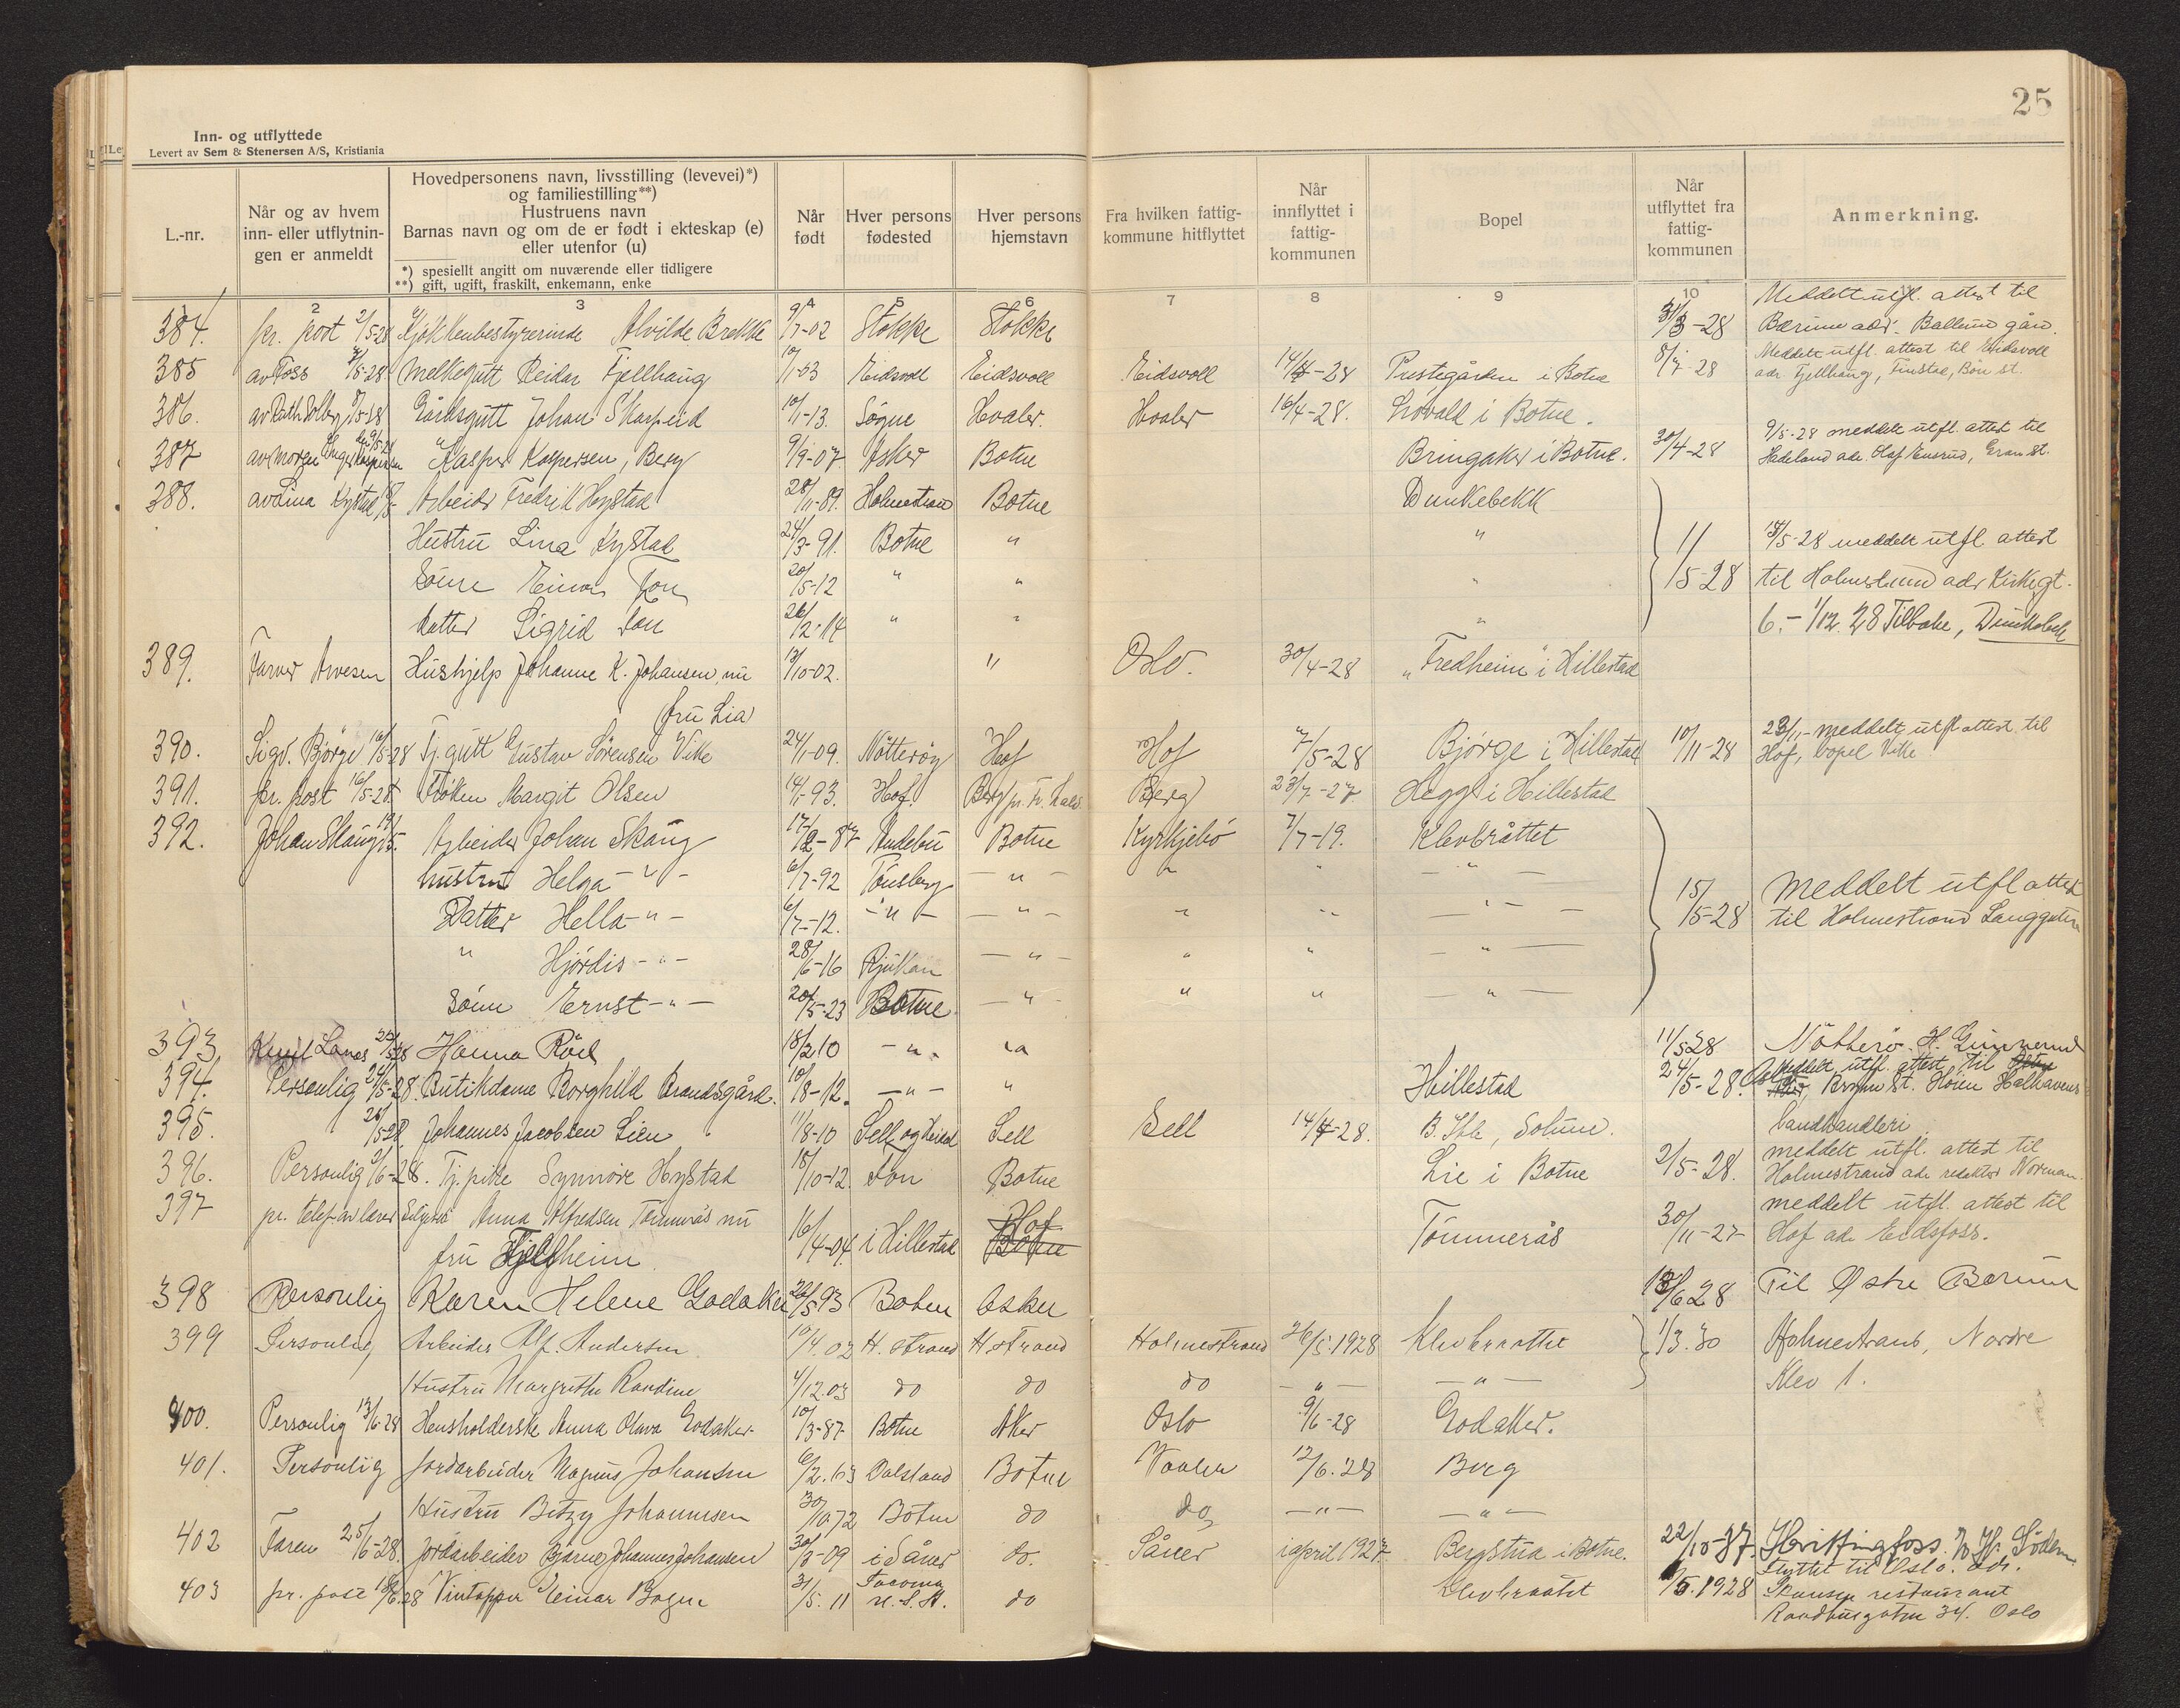 25
Inn- og utflyttede
Levert av Sem & Stenersen A/S, Kristiania
L.-nr.
Når og av hvem inn- eller utflytnin-gen er anmeldt
Hovedpersonens navn, livsstilling (levevei)*) og familiestilling**)
Hustruens navn
Barnas navn og om de er født i ekteskap (e) eller utenfor (u)
*) spesiellt angitt om nuværende eller tidligere
**) gift, ugift, fraskilt, enkemann, enke
Når født
Hver persons fødested
Hver persons hjemstavn
Fra hvilken fattig-kommune hitflyttet
Når innflyttet i fattig-kommunen
Bopel
Når utflyttet fra fattig-kommunen
Anmerkning.
2 3 4 5 6 7 8 9 10
Meddelt utfl. attest til
384. pr. post 2/5-28 Kjökkenbestyrerinde Alvilde Brekke 9/7-02 Stokke Stokke 31/3-28 Bærum adr. Ballerud gård.
Meddelt utfl. attest til Eidsvoll
385 av Foss 7/5-28 Melkegutt Reidar Fjellhaug 10/1-03 Eidsvoll Eidsvoll Eidsvoll 14/4-28 Prestegården i Botne 8/7-28 adr. Fjellhaug, Finstad, Bön st.
386. av Ruth Solberg 8/5-28 Gårdsgutt Johan 10/1-13. Søgne Hvaler. Hvaler 16/4-28. Lövald i Botne.
9/5-28 meddelt utfl. attest til
387 av Kaspersen 9/5-28 Kasper Kaspersen, Berg 9/9-07 Asker Botne Bringaker i Botne. 30/4-28 Hadeland adr. Gran st.
388. av Lina Hystad Arbeider Fredrik Hystad 28/11-89. Holmestrand Botne Dunkebekk
Hustru Lina Hystad 24/3-91. Botne " " 11/5-28 18/5-28 meddelt utfl. attest
Sönn Einar Fon 20/5-12 " " " til Holmestrand adr Kirkegt.
Datter Sigrid Fon 26/2-14 " " " 6. - 1/12. 28 Tilbake, Dunkebek
389. Farver Arvesen Hushjelp Johanne K. Johansen, nu 13/10-02. " Oslo. 30/4-28 "Fredheim" i Hillestad
fru Lia
390. Sigv. Bjørge 16/5-28 Tj. gutt Gustav Sørensen Vike 24/1-09. Nötteröy Hof Hof 7/5-28 Bjørge i Hillestad 10/11-28 23/11- meddelt utfl attest til
Hof, bopel Vike
391. pr. post 16/5-28 Frøken Margit Olsen 14/1-93. Hof. Berg pr. Fr.hald Berg 23/7-27 Hegg i Hillestad
392. Johan Skaug 15/5. Arbeider Johan Skaug 17/2-87 Andebu Botne Kyrkjebö 7/7-19. Klevbråttet
hustru Helga - " - 6/7-92 Tönsberg - " - " " - " -
Datter Hella - " - 6/7-12. - " - - " - " " - " - 15/5-28 Meddelt utfl attest
til Holmestrand Langgaten
" Hjördis - " - 28/6-16 Rjukan - " - " " - " -
Sönn Ernst - " - 20/5-23 Botne - " - " " - " -
393 23/5-28 Hanna Röed 18/2 10 - " - " 11/5 28 Nötterö. H. Gunnerud
394. Personlig 24/5-28. Butikdame Borghild Brandsgård. 10/8-12. - " - " Hillestad 24/5-28. Meddelt utfl. attest til
Bryn St. Høien Halhavens
landhandleri
395. 25/5-28. Johannes Jacobsen Lien 11/8-10 Sell Sell Sell 14/4-28. Solum.
396. Personlig 2/6-28. Tj. pike Synnøve Hystad 18/10-12. Fon Botne Lie i Botne 2/5-28. meddelt utfl. attest til
Holmestrand adr. redaktør Norman.
397 pr. telef. av lærer Anna Alfredsen Tömmerås nu 16/4-04. i Hillestad Hof Botne Tömmerås 30/11-27 meddelt utfl. attest til
fru Fjellheim. Hof adr. Eidsfoss.
398 Personlig Karen Helene Godaker 22/5 93 Botne Asker 13/6 28 Til Østre Bærum
399 Personlig Arbeider Alf. Andersen 10/4. 02 H. strand H. strand Holmestrand 26/5. 1928 Klevbraatte 1/3. 30 Holmestrand, Nordre
Hustru Margrethe Randine 4/12.03 do do do - " - - " - Klev 1.
400. Personlig 13/6-28 Husholderske Anna Olava Godaker 10/3-87 Botne Aker Oslo 9/6-28 Godaker.
401. Personlig Jordarbeider Magnus Johansen 6/2. 63 Dalsland Botne Vaaler 12/6. 28 Berg
Hustru Betzy Johannesen 30/10.72 Botne do do - " - - " -
402 Faren 25/6-28. Jordarbeider Bjarne Johannes Johansen 30/3-09 i Såner do. Såner i april 1927. Bergstua i Botne. 22/10-37. Hvittingfoss.
Flyttet til Oslo. adr.
403 pr. post 18/6.28 Vintapper Einar Bogen 31/5. 11 Tacoma do Klevbraatet /5. 1928 Skansen restaurant
U. S. A. Raadhusgaten 34. Oslo